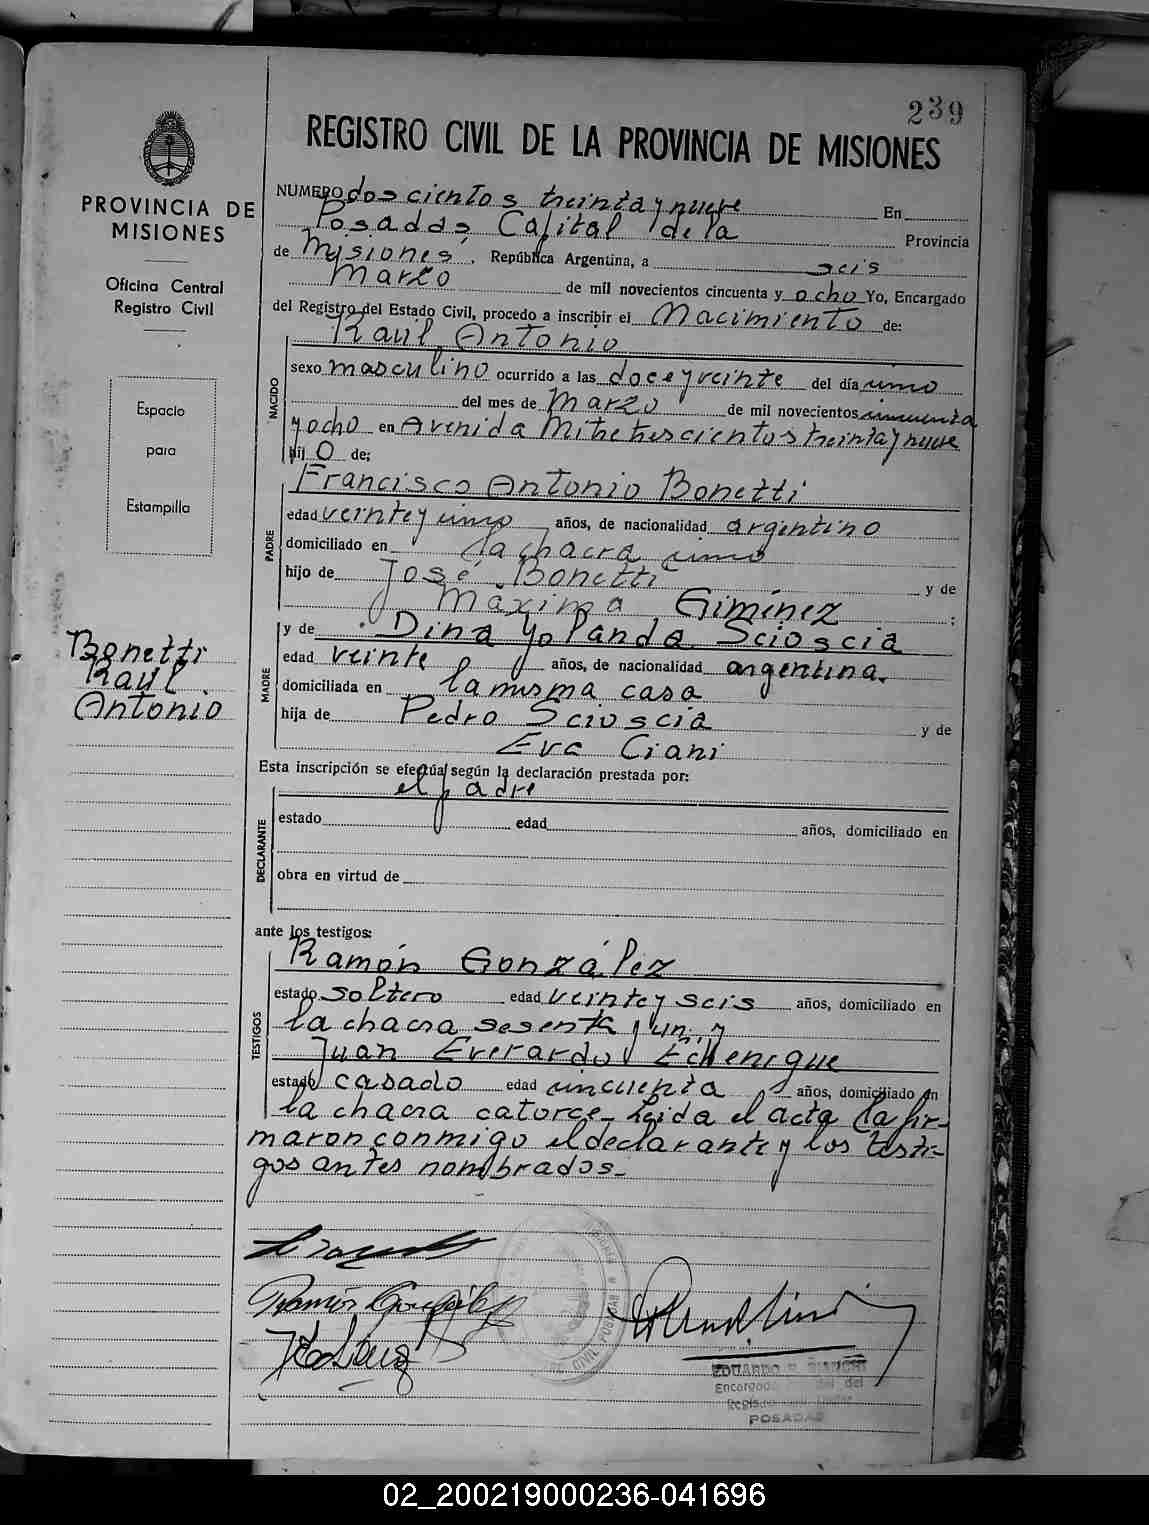 239
REGISTRO CIVIL DE LA PROVINCIA DE MISIONES
PROVINCIA DE
MISIONES
Oficina Central
Registro Civil
Espacio
para
Estampilla
Bonetti
Raúl
Antonio
NUMERO doscientos treinta y nueve En
Posadas, Capital de la Provincia
de Misiones, República Argentina, a seis
Marzo de mil novecientos cincuenta y ocho Yo, Encargado
del Registro del Estado Civil, procedo a inscribir el Nacimiento de:
NACIDO
Raúl Antonio
sexo masculino ocurrido a las doce y veinte del día uno
del mes de Marzo de mil novecientos cincuenta
y ocho en Avenida Mitre trescientos treinta y nueve
hij o de;
PADRE
Francisco Antonio Bonetti
edad veinte y uno años, de nacionalidad argentino
domiciliado en la chacra uno
hijo de José Bonetti y de
Máxima Giménez ;
MADRE
y de Dina Yolanda Scioscia
edad veinte años, de nacionalidad argentina.
domiciliada en la misma casa
hija de Pedro Scioscia y de
Eva Ciani
Esta inscripción se efectúa según la declaración prestada por:
el padre
DECLARANTE
estado edad años, domiciliado en
obra en virtud de
ante los testigos:
TESTIGOS
Ramón González
estado soltero edad veinte y seis años, domiciliado en
la chacra sesenta y un. y
Juan Everardo Echenique
estado casado edad cincuenta años, domiciliado en
la chacra catorce_ Leida el acta la fir-
maron conmigo el declarante y los testi-
gos antes nombrados_
Ramón González
EDUARDO R. BIANCHI
Encargado del
POSADAS
02_200219000236-041696